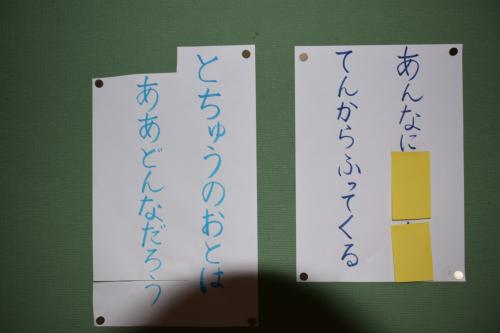 あんなに
てんからふってくる
とちゅうのおとは
ああどんなだろう